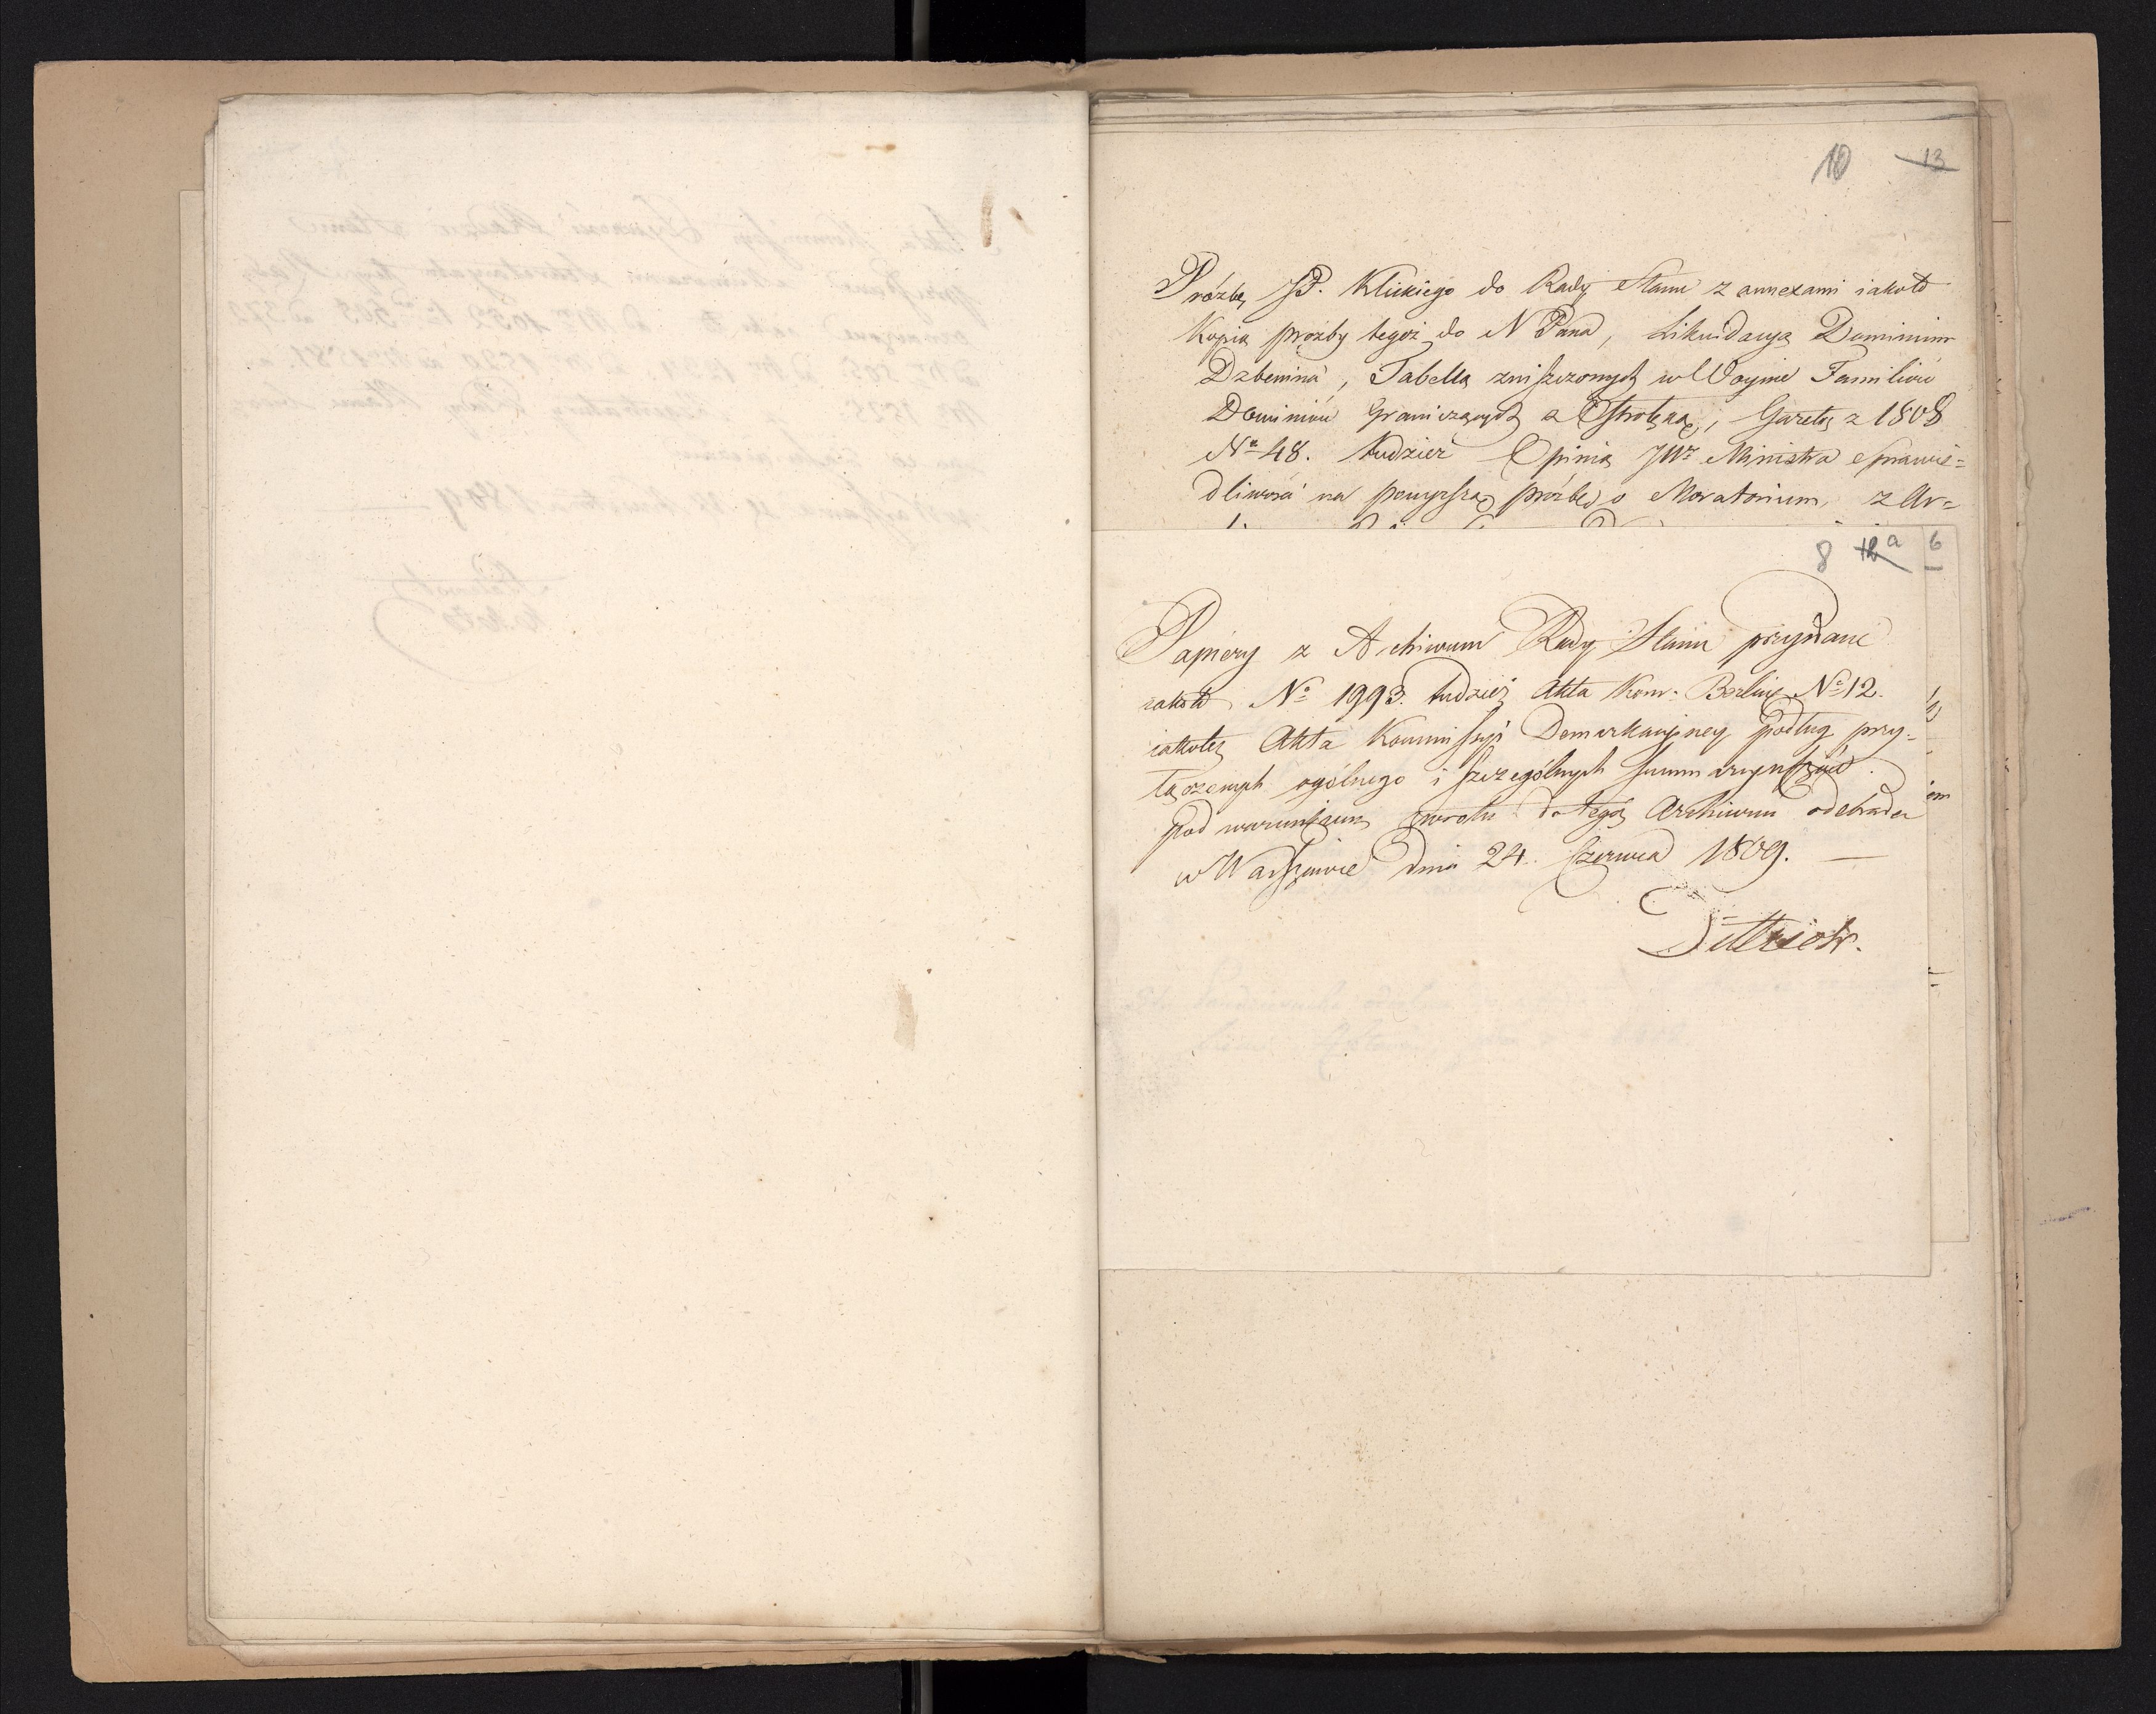 10 13
Prożbę JP. Klickiego do Rady Stanu z annexami iakoto
Kopią prożby tegoż do N Pana, Likwidacyą Dominium
Dzbenina, Tabellą zniszczonych w Woynie Familiów
Dominiów graniczących z Ostrołęką, Gazetą z 1808
No 48. tudzież Opinią JWo Ministra Sprawie=
dliwości na powyższą próżbę o Moratorium, z Ar=
8 12 a 6
Papiery z Archiwum Rady Stanu przysłane
iakoto No 1993. tudzież Akta Kom. Berliń. No 12.
iakoteż Akta Kommissyi Demarkacyiney podług przy=
łączonych ogólnego i szczególnych summaryuszów
pod warunkiem zwrotu do tegoż Archiwum odebrałem
w Warszawie dnia 24. Czerwca 1809. —